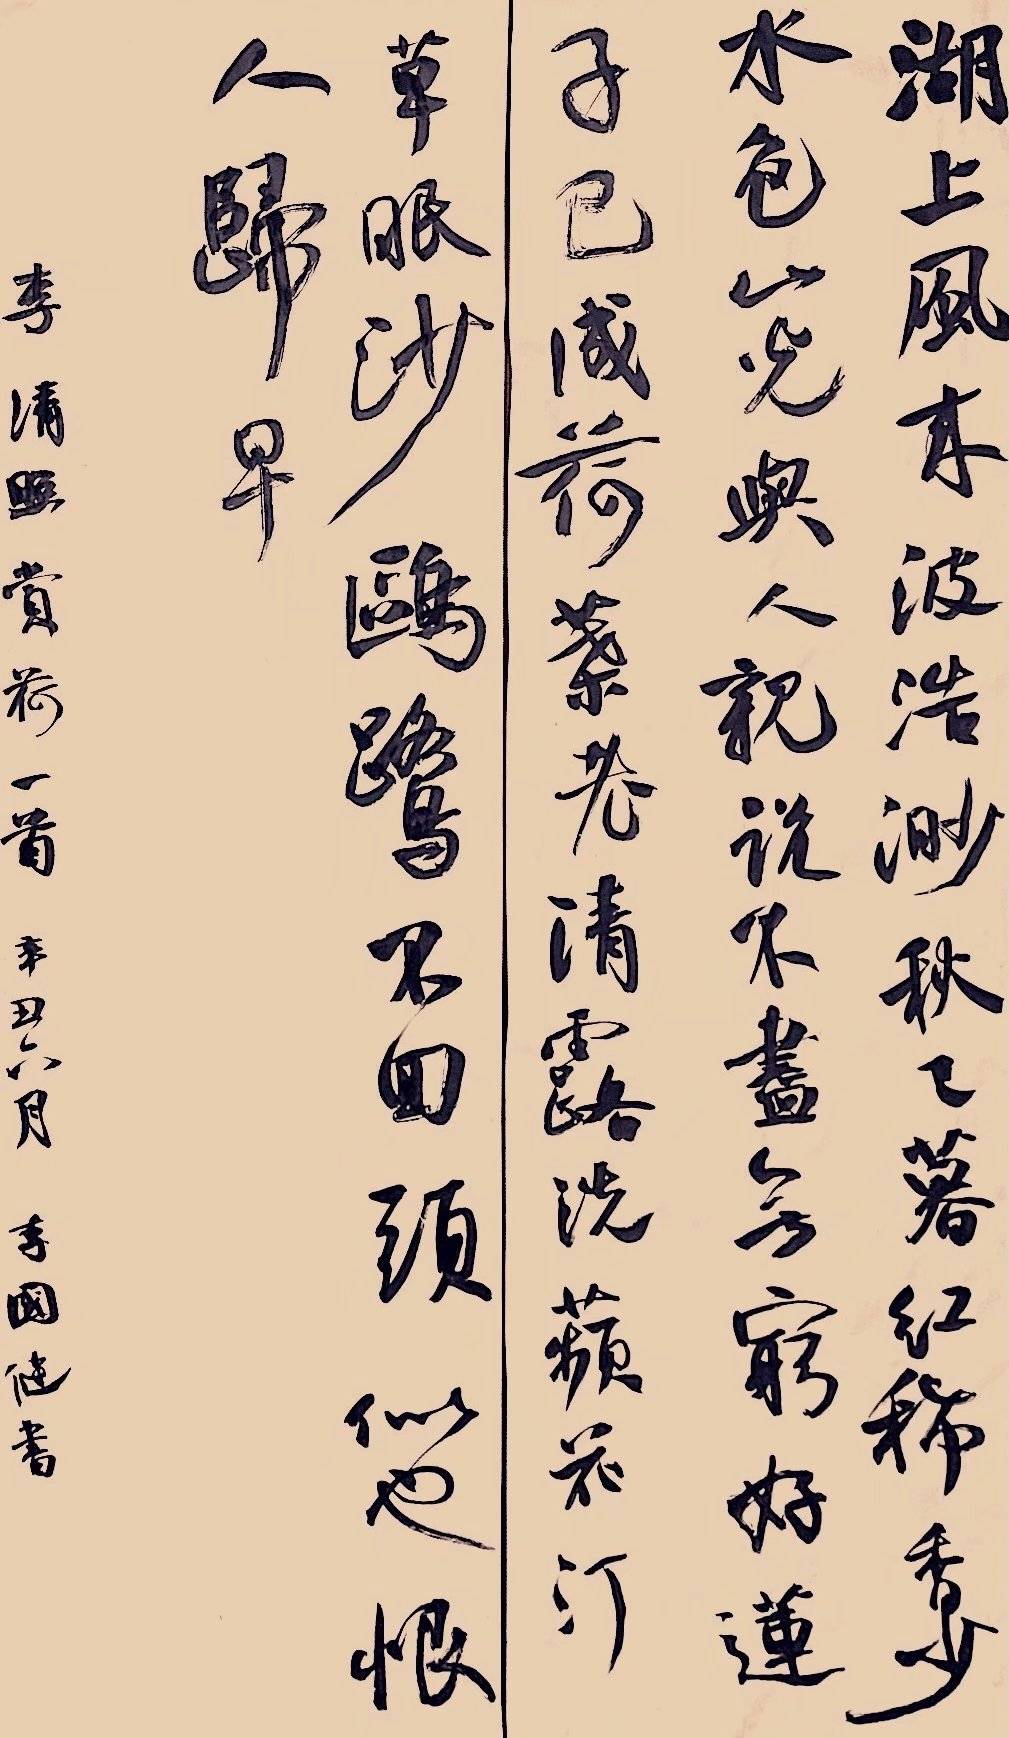 湖上風來波浩渺秋已暮紅稀香少
水色山光與人親說不盡無窮好蓮
子已成荷葉老清露洗蘋花汀
草眠沙鷗鷺不回頭似也恨
人歸早
李清照賞荷一首 辛丑六月 李國健書